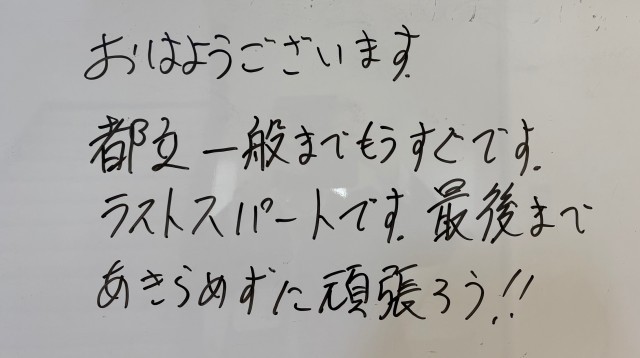 おはようございます
都立一般までもうすぐです.
ラストスパートです.最後まで
あきらめずに頑張ろう!!